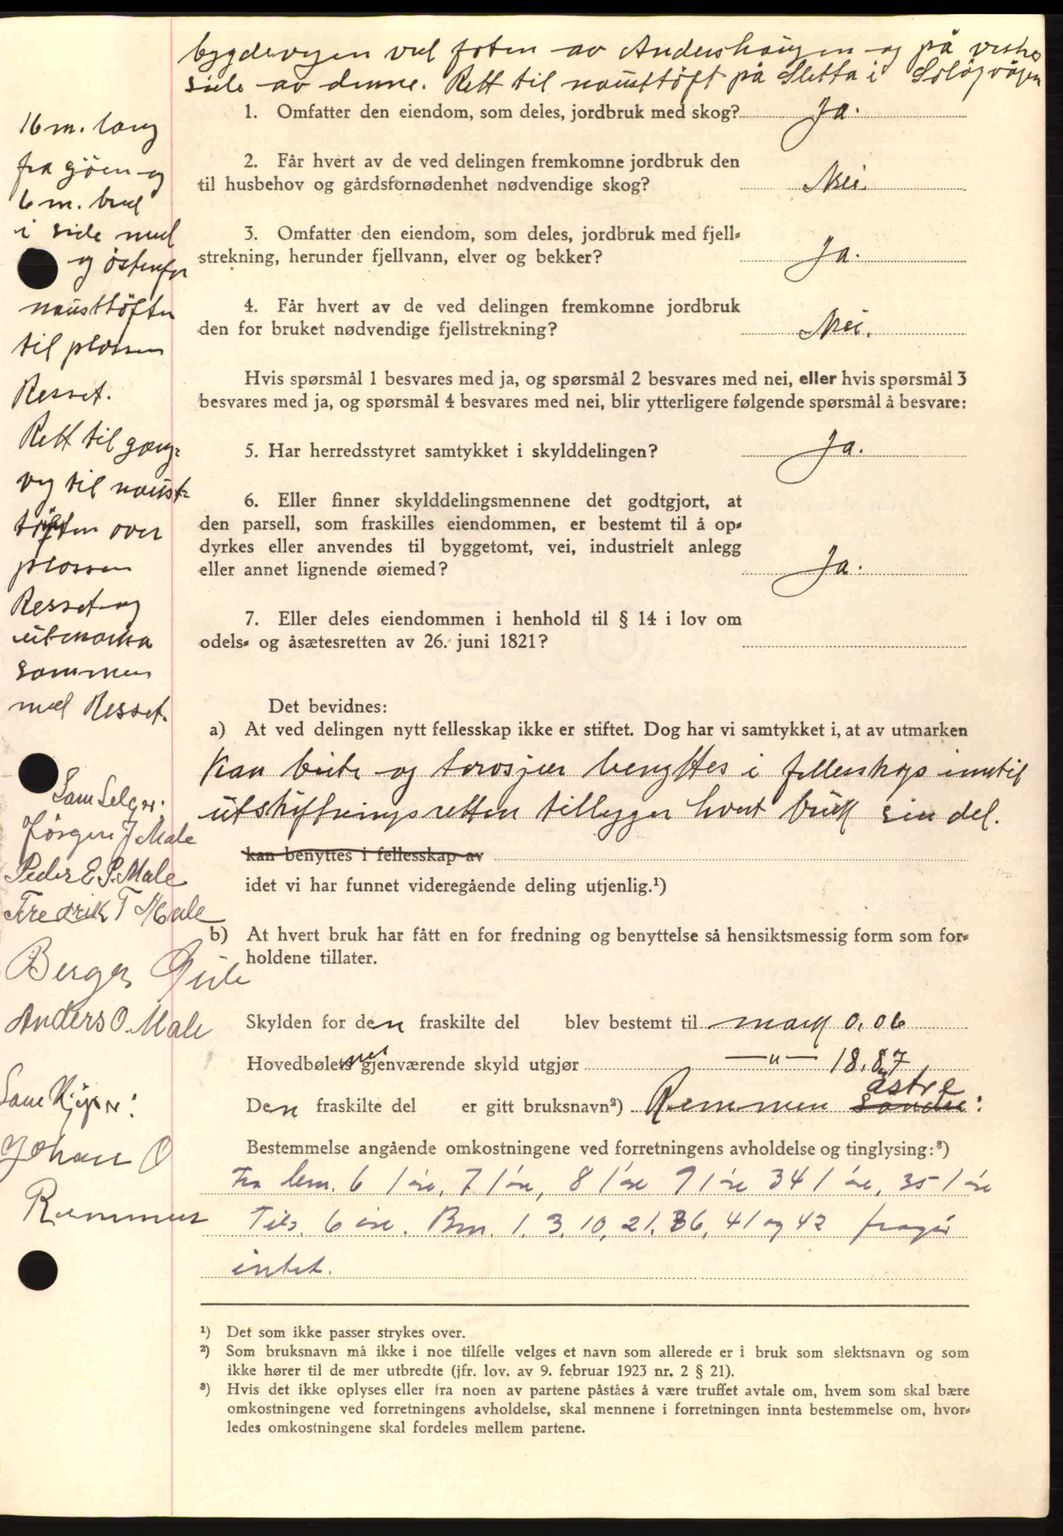 bygdevegen ved foten av Andershaugen og på vestre
side av denne. Rett til nausttoft på Sletta i Solövågen
16 m. lang
fra sjöen og
6 m. bred
i side med
og östenfor
nausttöften
til plassen
Resset.
Rett til gang-
veg til naust-
töften over
plassen
Resset og
utmarka
sammen
med Resset.
Som Selger:
Jörgen J Male
Peder E. P. Male
Fredrik T Male
Berger
Anders O. Male
Som Kjöper:
Johan O
Remmen
1. Omfatter den eiendom, som deles, jordbruk med skog? Ja.
2. Får hvert av de ved delingen fremkomne jordbruk den
til husbehov og gårdsfornødenhet nødvendige skog? Nei.
3. Omfatter den eiendom, som deles, jordbruk med fjell-
strekning, herunder fjellvann, elver og bekker? Ja.
4. Får hvert av de ved delingen fremkomne jordbruk
den for bruket nødvendige fjellstrekning? Nei.
Hvis spørsmål 1 besvares med ja, og spørsmål 2 besvares med nei, eller hvis spørsmål 3
besvares med ja, og spørsmål 4 besvares med nei, blir ytterligere følgende spørsmål å besvare:
5. Har herredsstyret samtykket i skylddelingen? Ja.
6. Eller finner skylddelingsmennene det godtgjort, at
den parsell, som fraskilles eiendommen, er bestemt til å op-
dyrkes eller anvendes til byggetomt, vei, industrielt anlegg
eller annet lignende øiemed? Ja.
7. Eller deles eiendommen i henhold til § 14 i lov om
odels- og åsætesretten av 26. juni 1821?
Det bevidnes:
a) At ved delingen nytt fellesskap ikke er stiftet. Dog har vi samtykket i, at av utmarken
kan beite og torvskjær benyttes i fellesskap inntil
utskiftningsretten tillegger hvert bruk sin del.
kan benyttes i fellesskap av
idet vi har funnet videregående deling utjenlig.¹)
b) At hvert bruk har fått en for fredning og benyttelse så hensiktsmessig form som for-
holdene tillater.
Skylden for den fraskilte del blev bestemt til mark 0,06
Hovedbølets gjenværende skyld utgjør —"— 18,87
Den fraskilte del er gitt bruksnavn²) Remmen søndre östre:
Bestemmelse angående omkostningene ved forretningens avholdelse og tinglysing:³)
Fra brn. 6 1 öre, 7 1 öre, 8 1 öre 9 1 öre 34 1 öre, 35 1 öre
Tils. 6 öre. Bn. 1, 3, 10, 21, 36, 41 og 42 fragår
intet.
¹) Det som ikke passer strykes over.
²) Som bruksnavn må ikke i noe tilfelle velges et navn som allerede er i bruk som slektsnavn og som
ikke hører til de mer utbredte (jfr. lov. av 9. februar 1923 nr. 2 § 21).
³) Hvis det ikke oplyses eller fra noen av partene påståes å være truffet avtale om, hvem som skal bære
omkostningene ved forretningens avholdelse, skal mennene i forretningen innta bestemmelse om, hvor-
ledes omkostningene skal fordeles mellem partene.